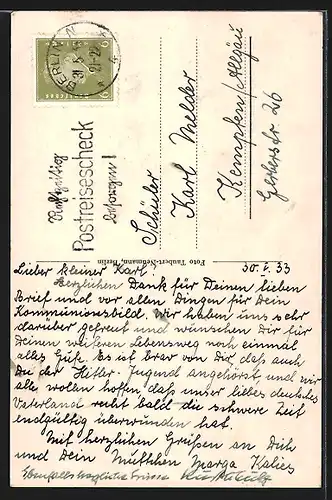 BERLIN
Rechtzeitig
Postreisescheck
besorgen!
Schüler
Karl Melder
Kempten/Allgäu
Foto Taubert-Neumann, Berlin
30. 5. 33
Lieber kleiner Karl!
Herzlichen Dank für Deinen lieben
Brief und vor allen Dingen für Dein
Kommunionsbild. Wir haben uns sehr
darüber gefreut und wünschen Dir für
Deinen weiteren Lebensweg noch einmal
alles Gute. Es ist brav von Dir, daß auch
Du der Hitler-Jugend angehörst, und wir
alle wollen hoffen, daß unser liebes deutsches
Vaterland recht bald die schwere Zeit
endgültig überwunden hat.
Mit herzlichen Grüßen an Dich
und Dein Muttchen Marga
Ebenfalls herzliche Grüsse